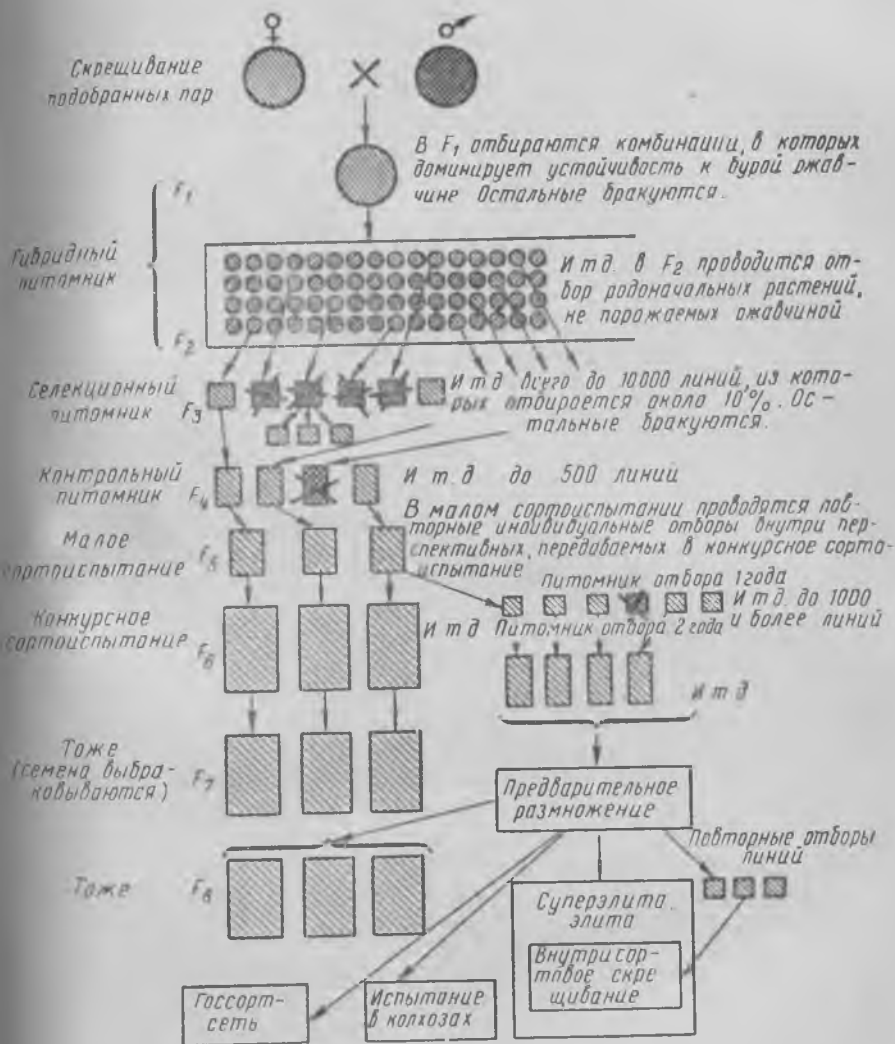 Скрещивание
подобранных пар
В F₁ отбираются комбинации, в которых
доминирует устойчивость к бурой ржав-
чине Остальные бракуются.
Гибридный
питомник
F₁
F₂
И т д. в F₂ проводится от-
бор родоначальных растений,
не поражаемых ржавчиной
Селекционный
питомник
F₃
И т д всего до 10000 линий, из кото-
рых отбирается около 10%. Ос-
тальные бракуются.
Контрольный
питомник
F₄
И т. д до 500 линий
Малое
сортоиспытание
F₅
В малом сортоиспытании проводятся пов-
торные индивидуальные отборы внутри пер-
спективных, передаваемых в конкурсное сорто-
испытание
Питомник отбора 1 года
И т д. до 1000
и более линий
Конкурсное
сортоиспытание
F₆
И т д Питомник отбора 2 года
И т д
Тоже
(семена выбра-
ковываются)
F₇
Предварительное
размножение
Повторные отборы
линий
Тоже
F₈
Суперэлита.
элита
Внутрисор-
товое скре
щивание
Госсорт-
сеть
Испытание
в колхозах